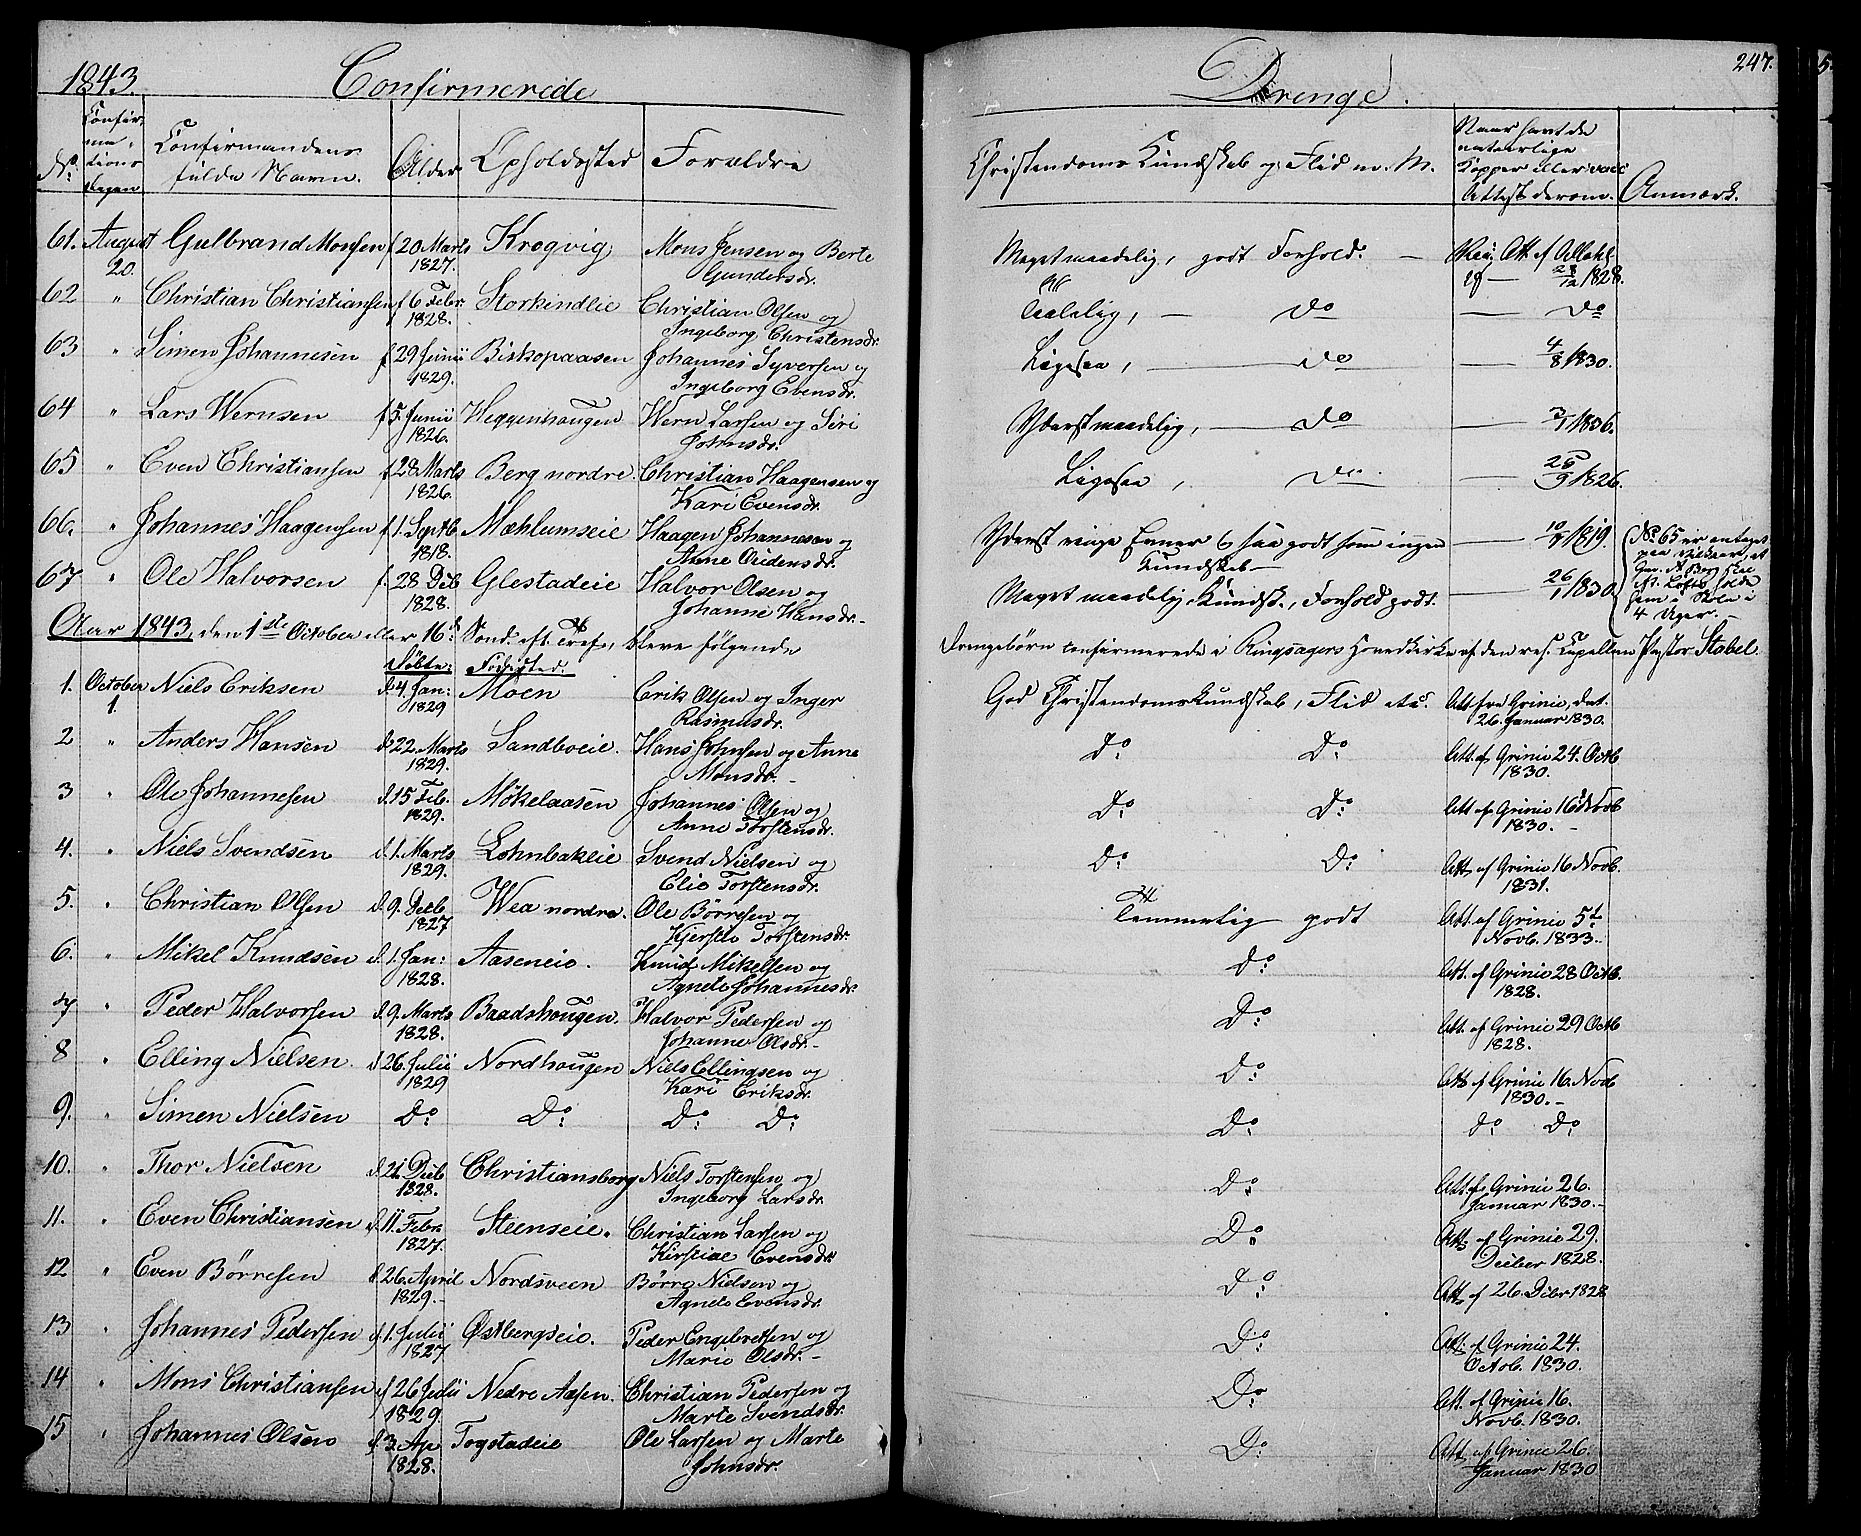 1843. Confirmerede Drenge. 247.
No. Confirmations Dagen Confirmandens fulde Navn. Alder Opholdssted Forældre Christendoms Kundskab og Flid m. M. Naar havt de naturlige Kopper eller vacc Attest derom. Anmærk.
61. August 20. Gulbrand Monsen f 20 Marts 1827. Krogvig Mons Jensen og Berte Gundersdr. Meget maadelig, godt Forhold. — Vac. Att. af 28/12 1828.
62 " Christian Christiansen f 6 Febr. 1828. Storkindlie Christian Olsen og Ingeborg Christensdr. Taalelig, — Do — Do
63 " Simen Johannesen f 29 Junii 1829. Biskopaasen Johannes Syversen og Ingeborg Evensdr. Ligesaa, — Do — 4/8 1830.
64 " Lars Wernsen f 5. Junii 1826. Heggenhaugen Wern Larsen og Siri Johnsdr. Yderst maadelig, — Do — 1836.
65 " Even Christiansen f 28 Marts 1826. Berg nordre. Christian Haagensen og Kari Evensdr. Ligesaa, Do — 25/9 1826.
66. " Johannes Haagensen f. 1. Septb 1818. Mæhlumseie Haagen Johannesen og Anne Eridensdr. Yderst ringe Evner & saa godt som ingen Kundskab — 1819.
67 " Ole Halvorsen f. 28 Dcb 1828. Glestadeie Halvor Olsen og Johanne Hansdr. Meget maadelig Kundsk., Forhold godt. — 26/1 1830.
No. 65 er antaget paa Vilkaar, at Gm. N Berg skal holde ham i Skole i 4 Uger. —
Aar 1843, den 1ste October eller 16de Sond. eft. Tref., bleve følgende Drengebørn confirmerede i Ringsagers Hovedkirke af den res. Capellan Pastor Stabel.
Døbte: Fødested:
1. October 1. Niels Eriksen d. 4. Jan: 1829 Moen Erik Olsen og Inger Rasmusdr. God Christendomskundskab, Flid etc. Att fra Grinie, dat. 26. Januar 1830.
2 " Anders Hansen d. 22. Marts 1829. Sandboeie. Hans Johnsen og Anne Monsdr. — Do Do Att. af Grinie 24. Octb 1830.
3 " Ole Johannesen d. 15 Feb. 1829. Møkelaasen Johannes Olsen og Anne Torstensdr. Do Do: Att af Grinie 16 Novb 1830. —
4. " Niels Svendsen d. 1. Marts 1829. Lohnbakeie Svend Nielsen og Elie Torstensdr. Do: Do: Att af Grinie 16 Novb. 1831.
5. " Christian Olsen d. 9. Decb 1827 Wea nordre. Ole Børresen og Kjerstie Torstensdr. Temmelig godt Att. af Grinie 5te Novb. 1833.
6. " Mikel Knudsen d. 1. Jan: 1828. Aaseneie. Knud Mikelsen og Agnete Johannesdr. Do: Att. af Grinie 28 Octb. 1828.
7 " Peder Halvorsen d. 9. Marts 1828. Baadshaugen. Halvor Pedersen og Johanne Olsdr. — Do: Att. af Grinie 29 Octb 1828.
8 " Elling Nielsen. d 26. Julii 1829 Nordhaugen Niels Ellingsen og Kari Eriksdr. Do: Att af Grinie 16. Novb 1830. —
9. " Simen Nielsen Do: Do: Do: Do: Do: Do: Do:
10. " Thor Nielsen d. 21. Decb 1828. Christiansborg Niels Torstensen og Ingeborg Larsdr. Do: Att. af Grinie 26. Januar 1830. —
11. " Even Christiansen d. 11. Febr. 1827. Steenseie. Christian Larsen og Kirstiae Evensdr. Do: Att. af Grinie 29. Decber 1828.
12 " Even Børresen d. 26. April 1829. — Nordsveen Børre Nielsen og Agnete Evensdr. Do: Att. af 26 Decbr 1828
13 " Johannes Pedersen d. 1. Julii 1827 Østbergseie. Peder Engebretsen og Marie Olsdr. — Do: Att. af Grinie 24. Octob. 1830.
14 " Mons Christiansen d 26 Julii 1829. Nedre Aasen. Christian Pedersen og Marte Svendsdr. Do: Att. af Grinie 16. Novb. 1830.
15 " Johannes Olsen d. 3. Ap 1828. Fogstadeie Ole Larsen og Marte Johnsdr. Do: Att. af Grinie 26. Januar 1830